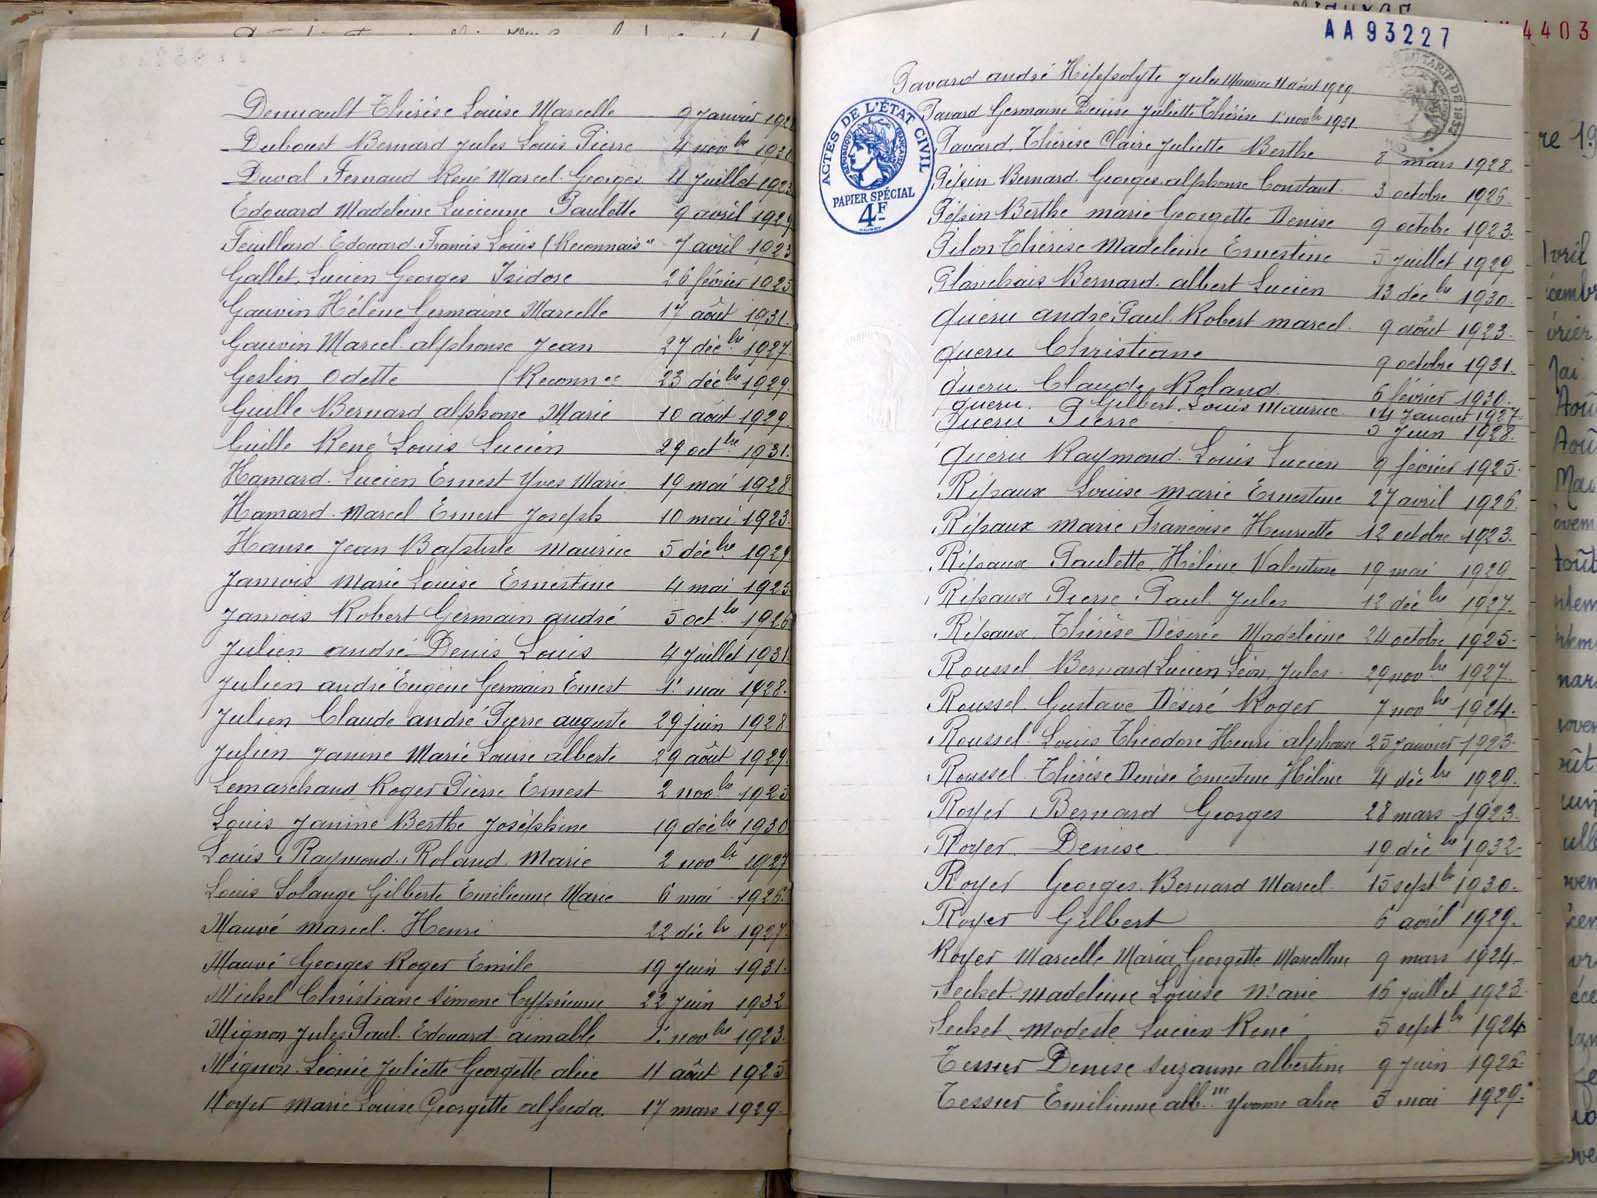 Denuault Thérèse Louise Marcelle 9 Janvier
Dubourt Bernard Jules Louis Pierre 4 novbre
Duval Fernand René Marcel Georges 11 Juillet 1923
Edouard Madeleine Lucienne Paulette 9 avril 1929
Feuillard Edouard Francis Louis (Reconnais" 7 avril 1923
Gallet Lucien Georges Isidore 26 février 1925
Gauvin Hélène Germaine Marcelle 17 août 1931.
Gauvin Marcel alphonse Jean 27 décbre 1927.
Geslin Odette (Reconnce 23 décbre 1929.
Guille Bernard alphonse Marie 10 août 1929.
Guille René Louis Lucien 29 octbre 1931.
Hamard Lucien Ernest Yves Marie 19 mai 1928
Hamard Marcel Ernest Joseph 10 mai 1923.
Hause Jean Baptiste Maurice 5 décbre 1929
Jamois Marie Louise Ernestine 4 mai 1925
Jamois Robert Germain andré 5 octbre 1926
Julien andré Denis Louis 4 Juillet 1931
Julien andré Eugène Germain Ernest 1er mai 1928.
Julien Claude andré Pierre auguste 29 juin 1928
Julien Janine Marie Louise alberte 29 août 1929.
Lemarchand Roger Pierre Ernest 2 novbre 1923
Louis Janine Berthe Joséphine 19 décbre 1930
Louis Raymond Roland Marie 2 novbre 1927
Louis Solange Gilberte Emilienne Marie 6 mai 1926
Mauvé Marcel Henri 22 décbre 1927.
Mauvé Georges Roger Emile 19 Juin 1931.
Michel Christiane Simone Cyprienne 22 Juin 1932
Mignon Jules Paul Edouard aimable 1er novbre 1923.
Mignon Léonie Juliette Georgette alice 11 août 1925
Noyer Marie Louise Georgette alfreda 17 mars 1929.
AA 93227
4403
ACTES DE L'ÉTAT CIVIL
RÉPUBLIQUE FRANÇAISE
PAPIER SPÉCIAL
4F
Pavard andré Hippolyte Jules Maurice 11 août 1929
Pavard Germaine Denise Juliette Thérèse 1er novbre 1931.
Pavard Thérèse Claire Juliette Berthe 8 mars 1928.
Pépin Bernard Georges alphonse Constant 3 octobre 1926.
Pépin Berthe Marie Georgette Denise 9 octobre 1923.
Pilon Thérèse Madeleine Ernestine 5 Juillet 1929.
Planchais Bernard albert Lucien 13 décbre 1930.
Quéru andré Paul Robert marcel 9 août 1923.
Quéru Christiane 9 octobre 1931.
Quéru Claude Roland 6 février 1930.
Quéru Gilbert Louis Maurice 14 Janvier 1927
Quéru Pierre 5 Juin 1928.
Quéru Raymond Louis Lucien 9 février 1925.
Ripaux Louise Marie Ernestine 27 avril 1926.
Ripaux Marie Françoise Henriette 12 octobre 1923.
Ripaux Paulette Hélène Valentine 19 mai 1929
Ripaux Pierre Paul Jules 12 décbre 1927.
Ripaux Thérèse Désirée Madeleine 24 octobre 1925.
Roussel Bernard Lucien Léon Jules 29 novbre 1927.
Roussel Gustave Désiré Roger 7 novbre 1924.
Roussel Louis Théodore Henri alphonse 25 Janvier 1923.
Roussel Thérèse Denise Ernestine Hélène 4 décbre 1929.
Royer Bernard Georges 28 mars 1923.
Royer Denise 19 décbre 1932.
Royer Georges Bernard Marcel 15 septbre 1930.
Royer Gilbert 6 avril 1929.
Royer Marcelle Maria Georgette Marcelline 9 mars 1924.
Sechet Madeleine Louise Marie 16 Juillet 1923.
Sechet Modeste Lucien René 5 septbre 1924
Tessier Denise Suzanne albertine 9 Juin 1926.
Tessier Emilienne albine Yvonne alice 5 mai 1929.